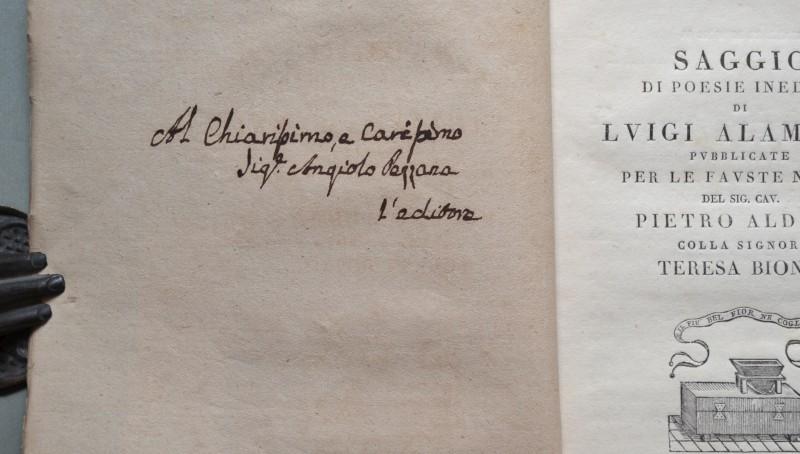 Al Chiariſsimo, e Cariſsimo
Sigr. Angiolo Pezzana
l'editore
SAGGIO
DI POESIE INED
DI
LVIGI ALAM
PVBBLICATE
PER LE FAVSTE N
DEL SIG. CAV.
PIETRO ALD
COLLA SIGNOR
TERESA BION
IL PIU BEL FIOR NE COGL